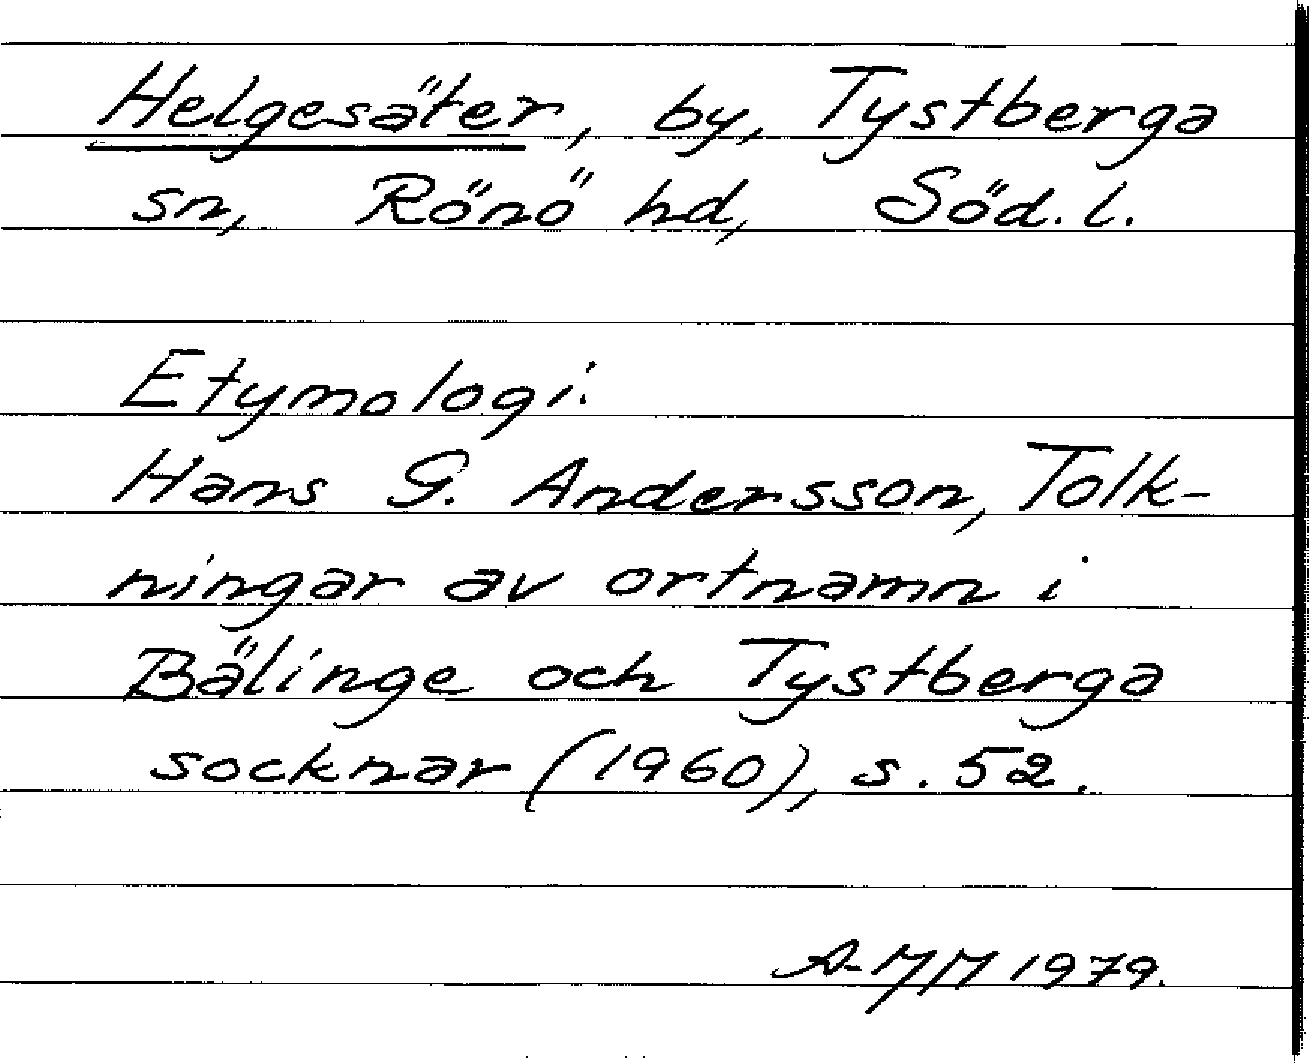 Helgesäter, by, Tystberga
sn, Rönö hd, Söd. l.
Etymologi:
Hans G. Andersson, Tolk-
ningar av ortnamn i
Bälinge och Tystberga
socknar (1960), s. 52.
A-MM 1979.